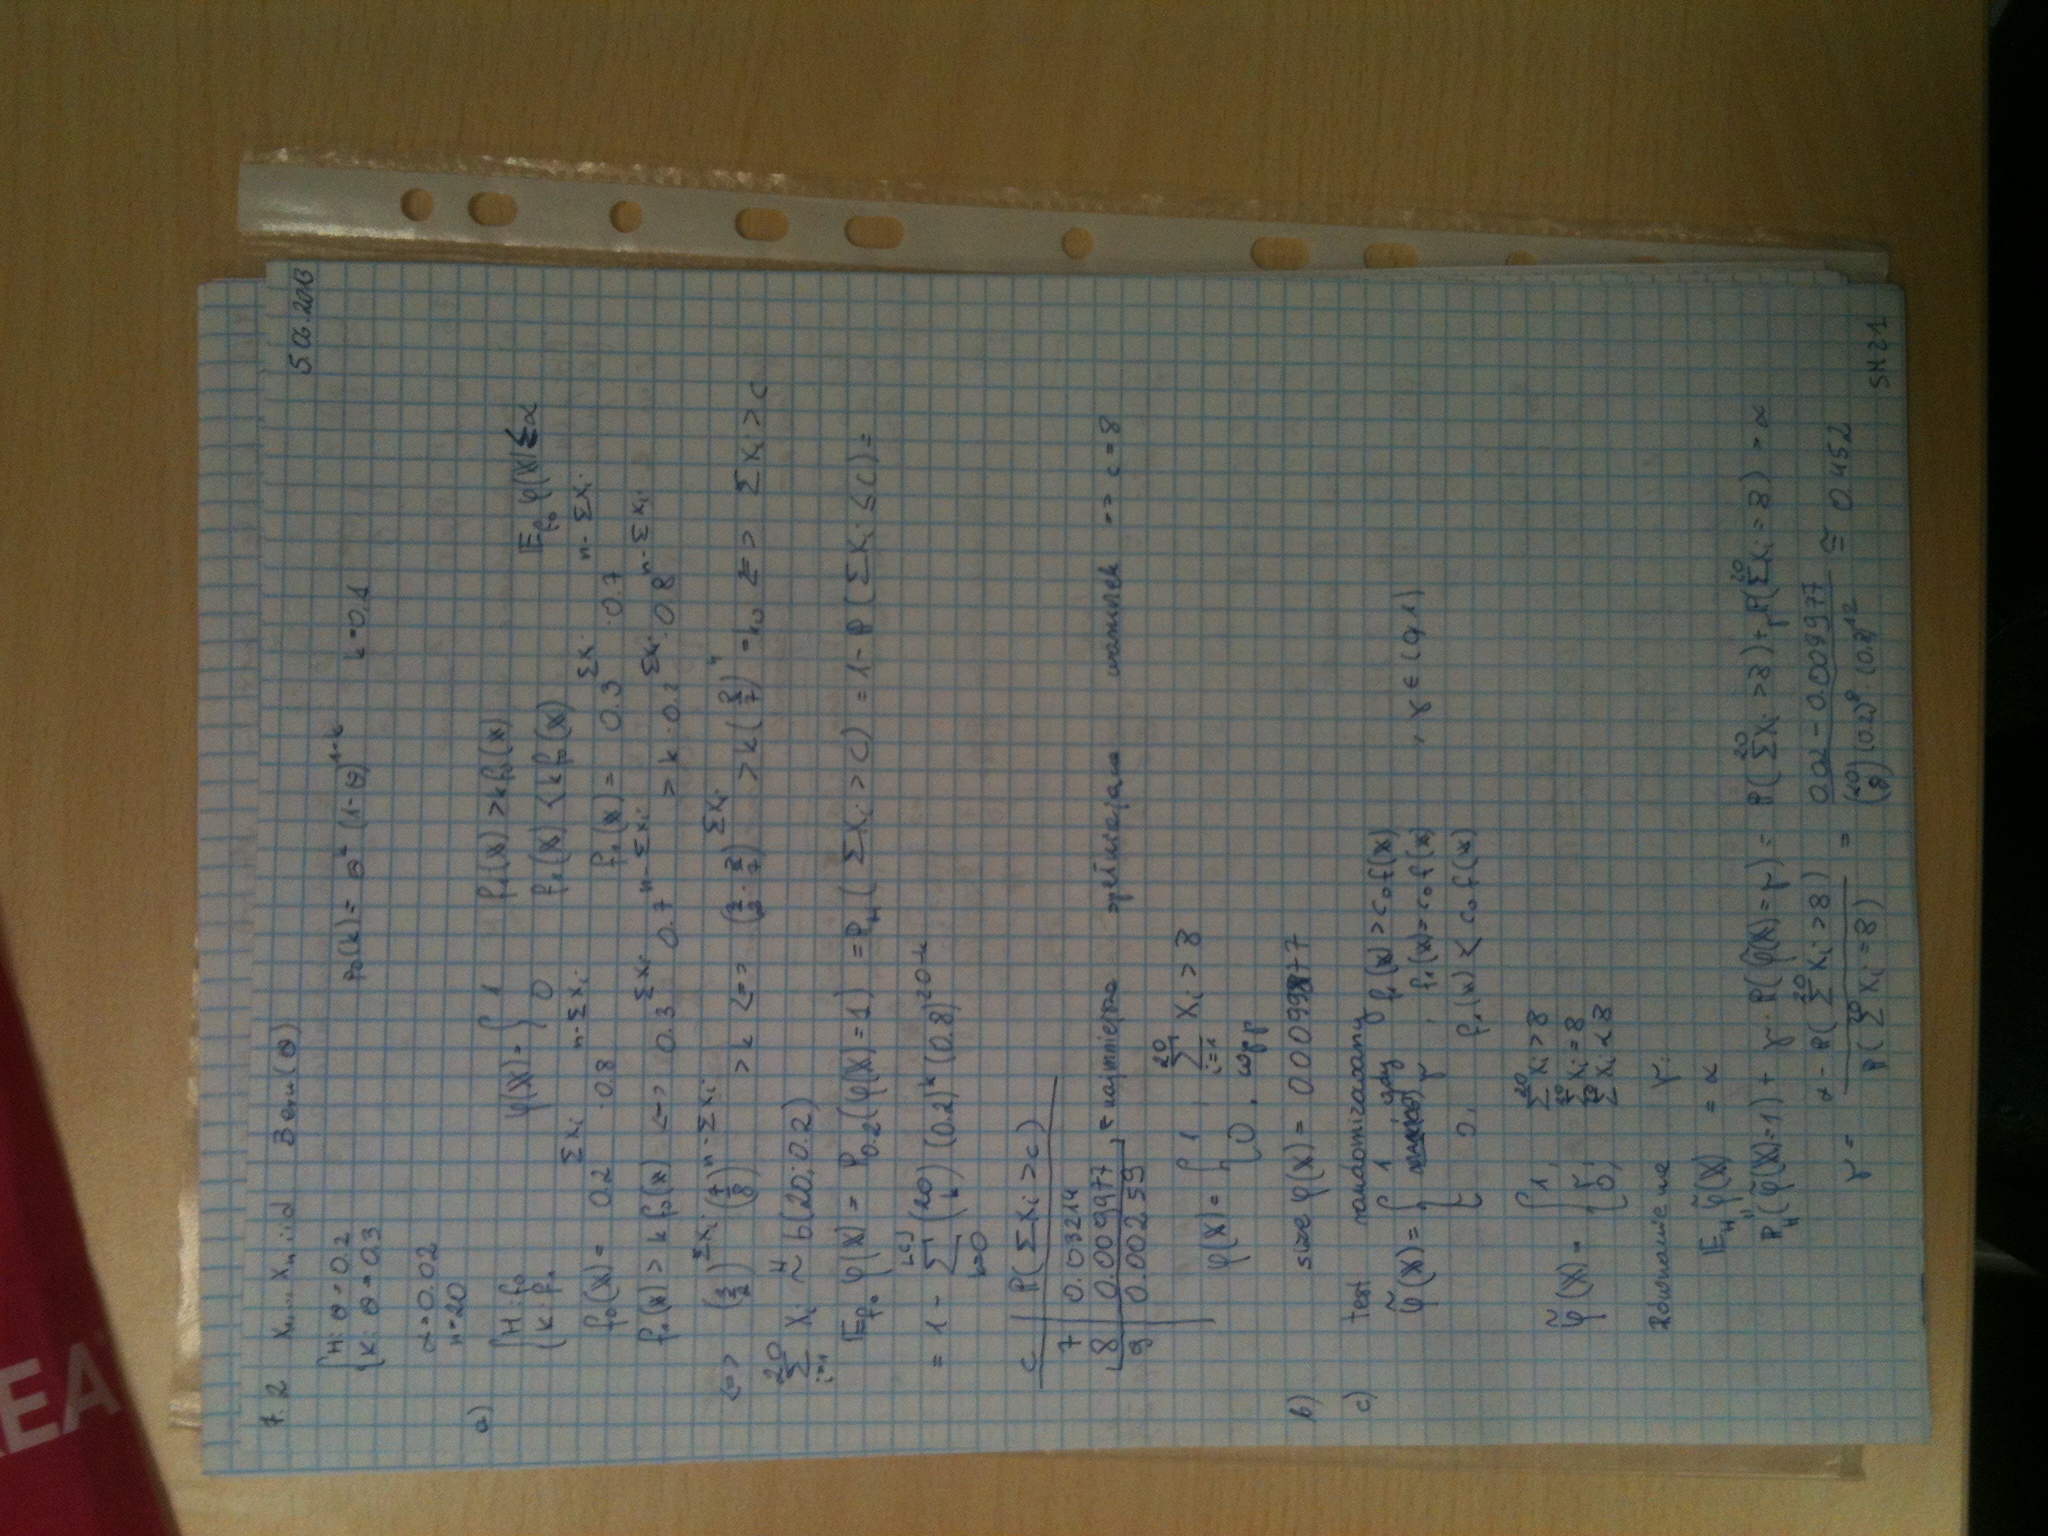 EA
7.2 X₁,...,Xₙ iid Bern(θ)
5.06.2013
{H: θ = 0.2
{K: θ = 0.3
p_θ(k) = θ^k (1-θ)^{1-k} k=0,1
α = 0.02
n = 20
a)
{H: f₀
{K: f₁
φ(X) = { 1 f₁(X) > k f₀(X)
0 f₁(X) < k f₀(X)
E_{f₀} φ(X) ≤ α
f₀(X) = 0.2^{ΣXi} · 0.8^{n-ΣXi} f₁(X) = 0.3^{ΣXi} · 0.7^{n-ΣXi}
f₁(X) > k f₀(X) <=> 0.3^{ΣXi} 0.7^{n-ΣXi} > k · 0.2^{ΣXi} · 0.8^{n-ΣXi}
<=> (3/2)^{ΣXi} (7/8)^{n-ΣXi} > k <=> (3/2 · 8/7)^{ΣXi} > k (8/7)^n = k₀ <=> ΣXi > c
Σ_{i=1}^{20} Xi ~^H b(20; 0.2)
E_{f₀} φ(X) = P_{0.2}(φ(X) = 1) = P_H(ΣXi > c) = 1 - P(ΣXi ≤ c) =
= 1 - Σ_{k=0}^{⌊c⌋} (20 k) (0.2)^k (0.8)^{20-k}
c | P(ΣXi > c)
7 | 0.03214
8 | 0.009977 ← najmniejsza spełniająca warunek => c = 8
9 | 0.00259
φ(X) = { 1, Σ_{i=1}^{20} Xi > 8
0, wpp
b) size φ(X) = 0.009977
c) test randomizowany
φ̃(X) = { 1, gdy f₁(X) > c₀ f(X)
γ, f₁(X) = c₀ f(X) , γ ∈ (0,1)
0, f₁(X) < c₀ f(X)
φ̃(X) = { 1, Σ^{20} Xi > 8
γ, Σ^{20} Xi = 8
0, Σ^{20} Xi < 8
Równanie na γ:
E_H φ̃(X) = α
P_H(φ̃(X) = 1) + γ · P(φ̃(X) = γ) = P(Σ^{20} Xi > 8) + γ P(Σ^{20} Xi = 8) = α
γ = (α - P(Σ^{20} Xi > 8)) / P(Σ^{20} Xi = 8) = (0.02 - 0.009977) / ((20 8) (0.2)^8 · (0.8)^{12}) ≅ 0.452